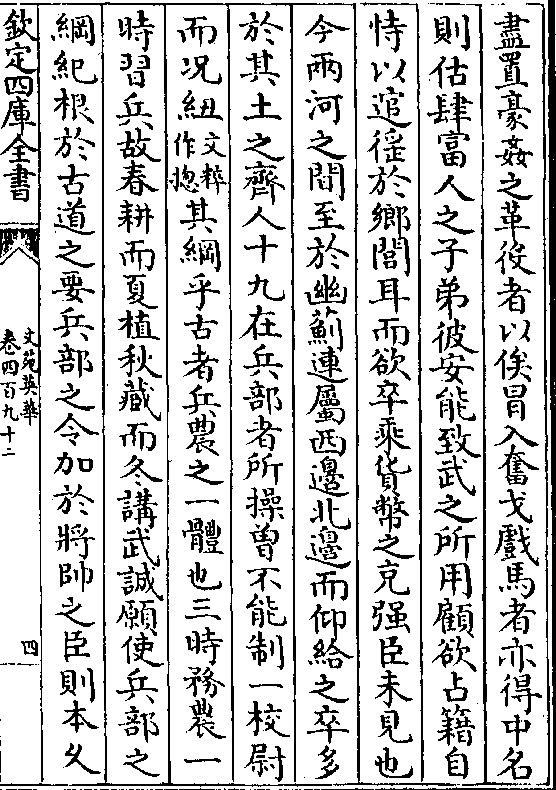 盡置豪姦之革役者以俟冒入奮戈戲馬者亦得中名
則估肆富人之子弟彼安能致武之所用顧欲占籍自
恃以逭徭於鄉閭耳而欲卒乘貨幣之克强臣未見也
今兩河之間至於幽薊連屬西邊北邊而仰給之卒多
於其土之齊人十九在兵部者所操曾不能制一校尉
而况紐文粹作揔其綱乎古者兵農之一體也三時務農一
時習兵故春耕而夏植秋藏而冬講武誠願使兵部之
綱紀根於古道之要兵部之令加於將帥之臣則本久
欽定四庫全書
文苑英華
卷四百九十二
四